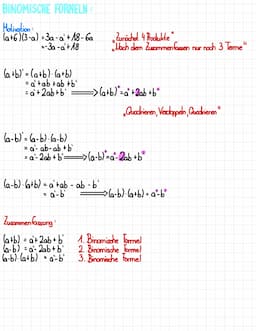 BINOMISCHE FORMELN:
Motivation:
(a+6)(3-a) = 3a - a² + 18 - 6a „Zunächst 4 Produkte"
= -3a - a² + 18 „Nach dem Zusammenfassen nur noch 3 Terme"
(a+b)² = (a+b)·(a+b)
= a² + ab + ab + b²
= a² + 2ab + b² ⟹ (a+b)² = a² + 2ab + b²
„Quadrieren, Verdoppeln, Quadrieren"
(a-b)² = (a-b)·(a-b)
= a² - ab - ab + b²
= a² - 2ab + b² ⟹ (a-b)² = a² - 2ab + b²
(a-b)·(a+b) = a² + ab - ab - b²
= a² - b² ⟹ (a-b)·(a+b) = a² - b²
Zusammenfassung:
(a+b)² = a² + 2ab + b² 1. Binomische Formel
(a-b)² = a² - 2ab + b² 2. Binomische Formel
(a-b)·(a+b) = a² - b² 3. Binomische Formel